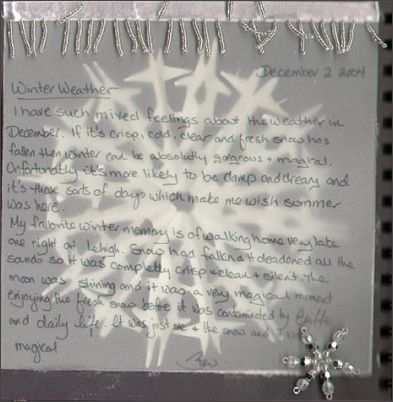 December 2 2004
Winter Weather
I have such mixed feelings about the weather in
December. If it's crisp, cold, clear and fresh snow has
fallen then winter can be absolutly gorgeous + magical.
Unfortunatly it's more likely to be damp and dreary and
it's those sorts of days which make me wish summer
was here.
My favorite winter memory is of walking home very late
one night at Lehigh. Snow had fallen + deadened all the
sands so it was completly crisp + clean + silent. The
moon was shining and it was a very magical moment
enjoying the fresh snow before it was contaminated by traffic
and daily life. It was just me + the snow and it was
magical